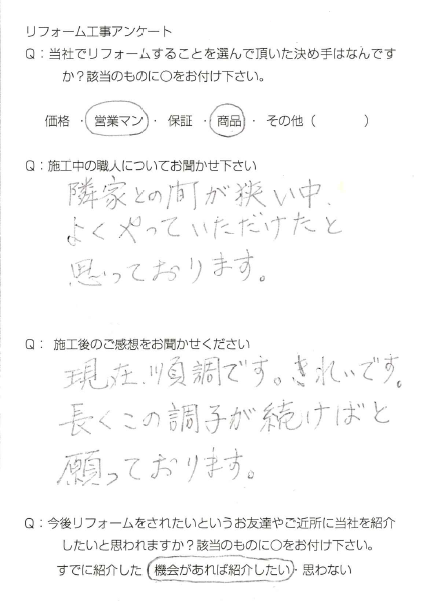 リフォーム工事アンケート
Q：当社でリフォームすることを選んで頂いた決め手はなんです
か？該当のものに○をお付け下さい。
価格 ・ 営業マン ・ 保証 ・ 商品 ・ その他（　　　）
Q：施工中の職人についてお聞かせ下さい
隣家との間が狭い中、
よくやっていただけたと
思っております。
Q： 施工後のご感想をお聞かせください
現在、順調です。きれいです。
長くこの調子が続けばと
願っております。
Q：今後リフォームをされたいというお友達やご近所に当社を紹介
したいと思われますか？該当のものに○をお付け下さい。
すでに紹介した ・ 機会があれば紹介したい ・ 思わない